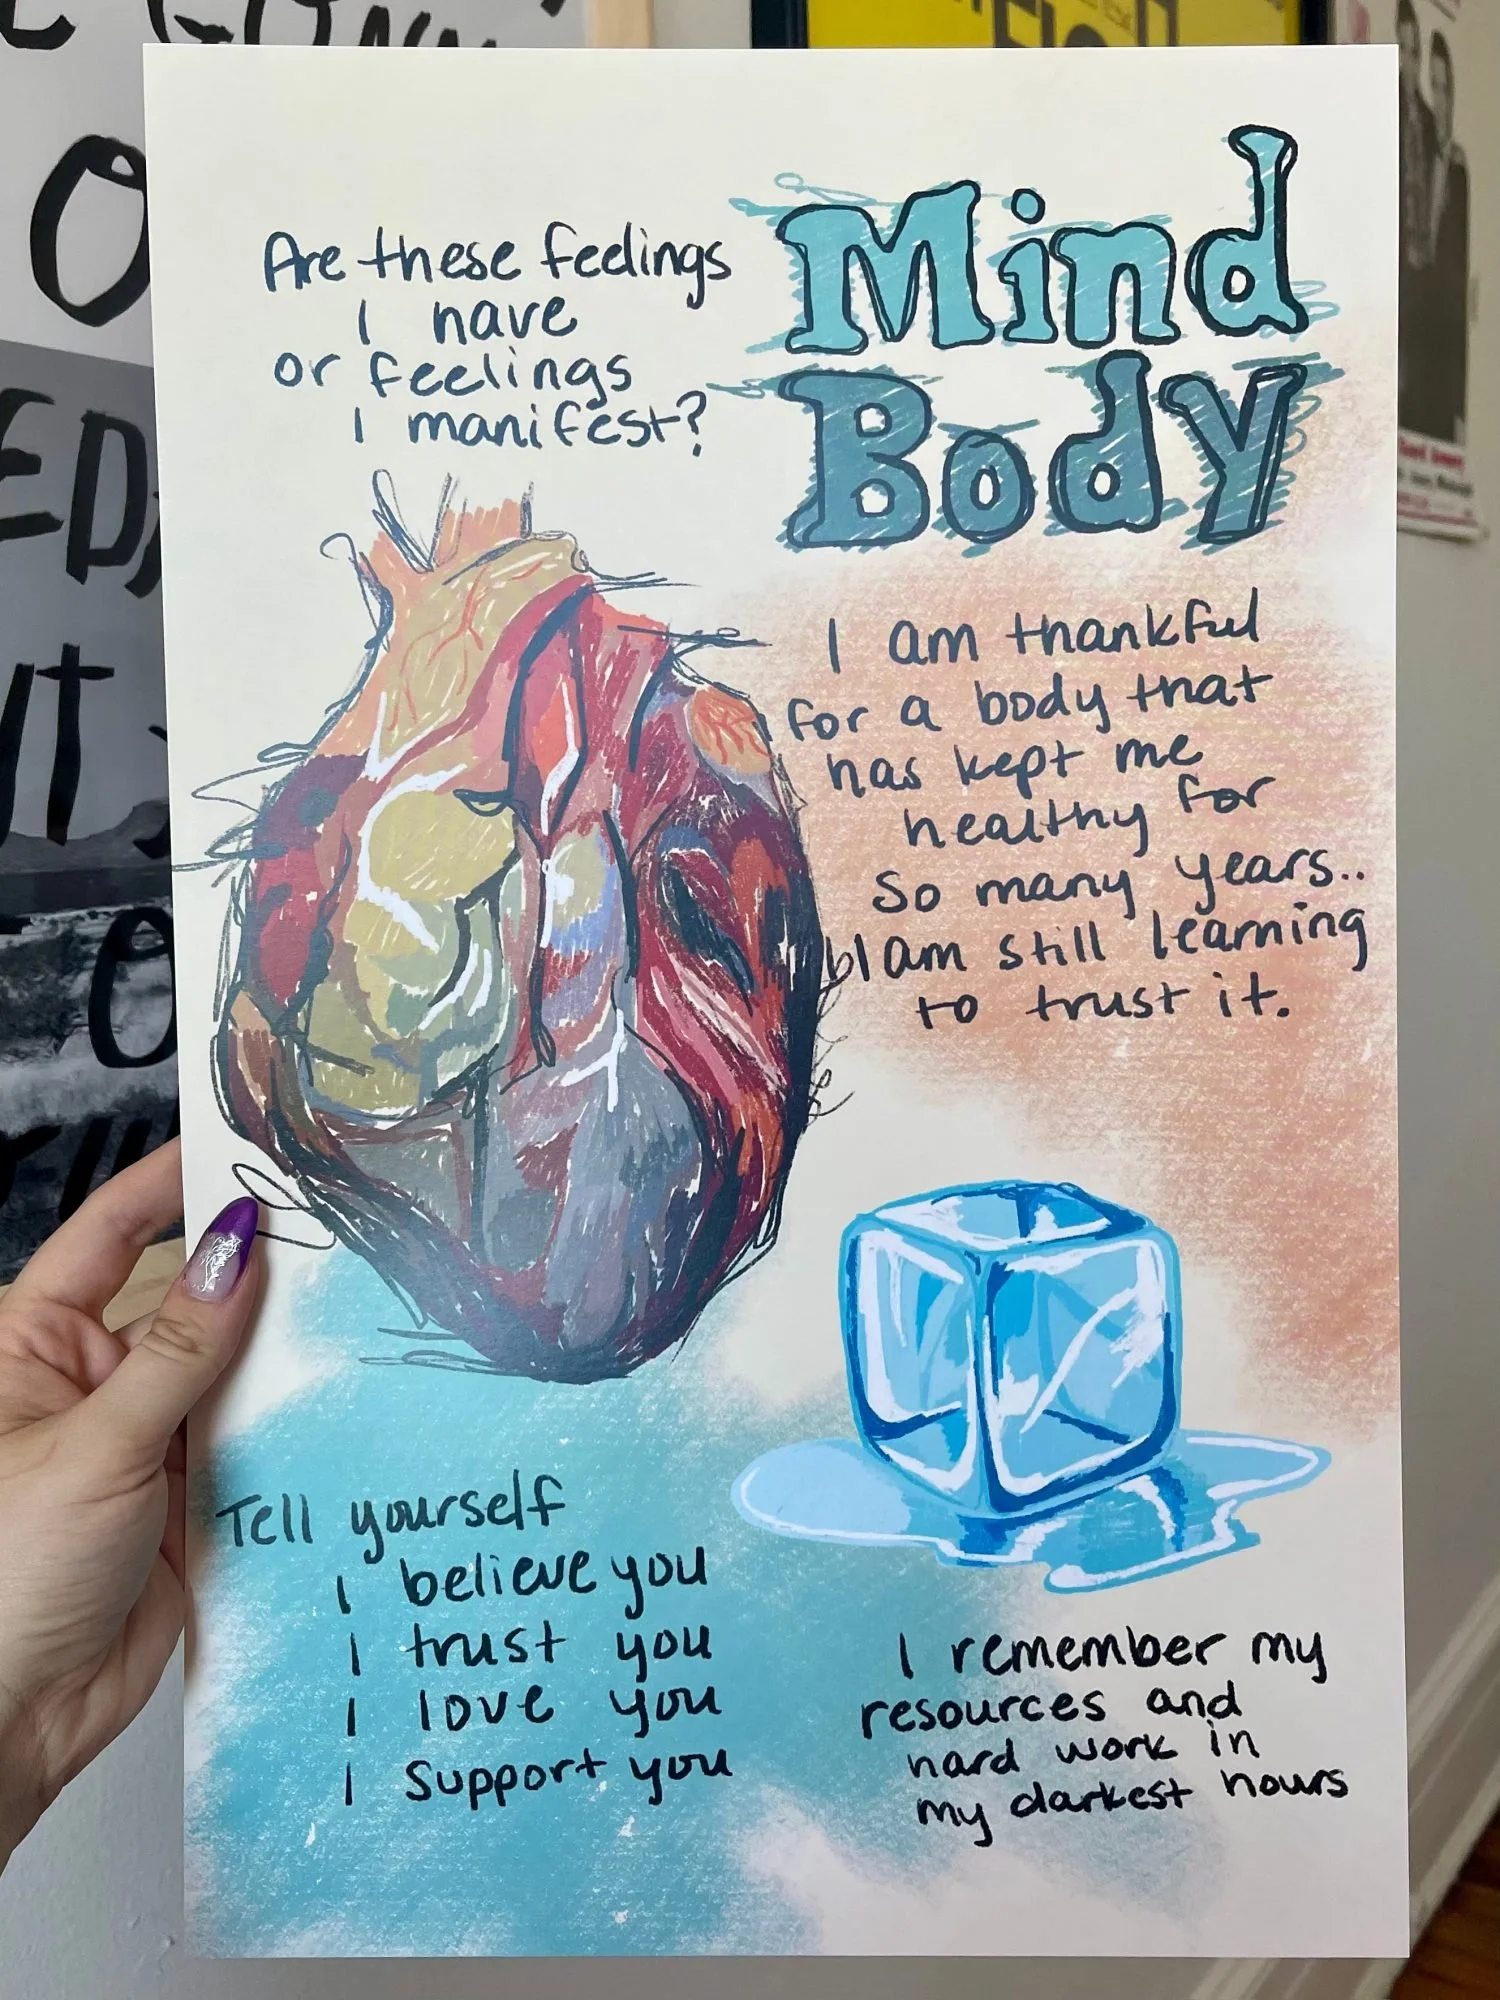 Mind
Body
Are these feelings
I have
or feelings
I manifest?
I am thankful
for a body that
has kept me
healthy for
so many years..
I am still learning
to trust it.
Tell yourself
I believe you
I trust you
I love you
I support you
I remember my
resources and
hard work in
my darkest hours